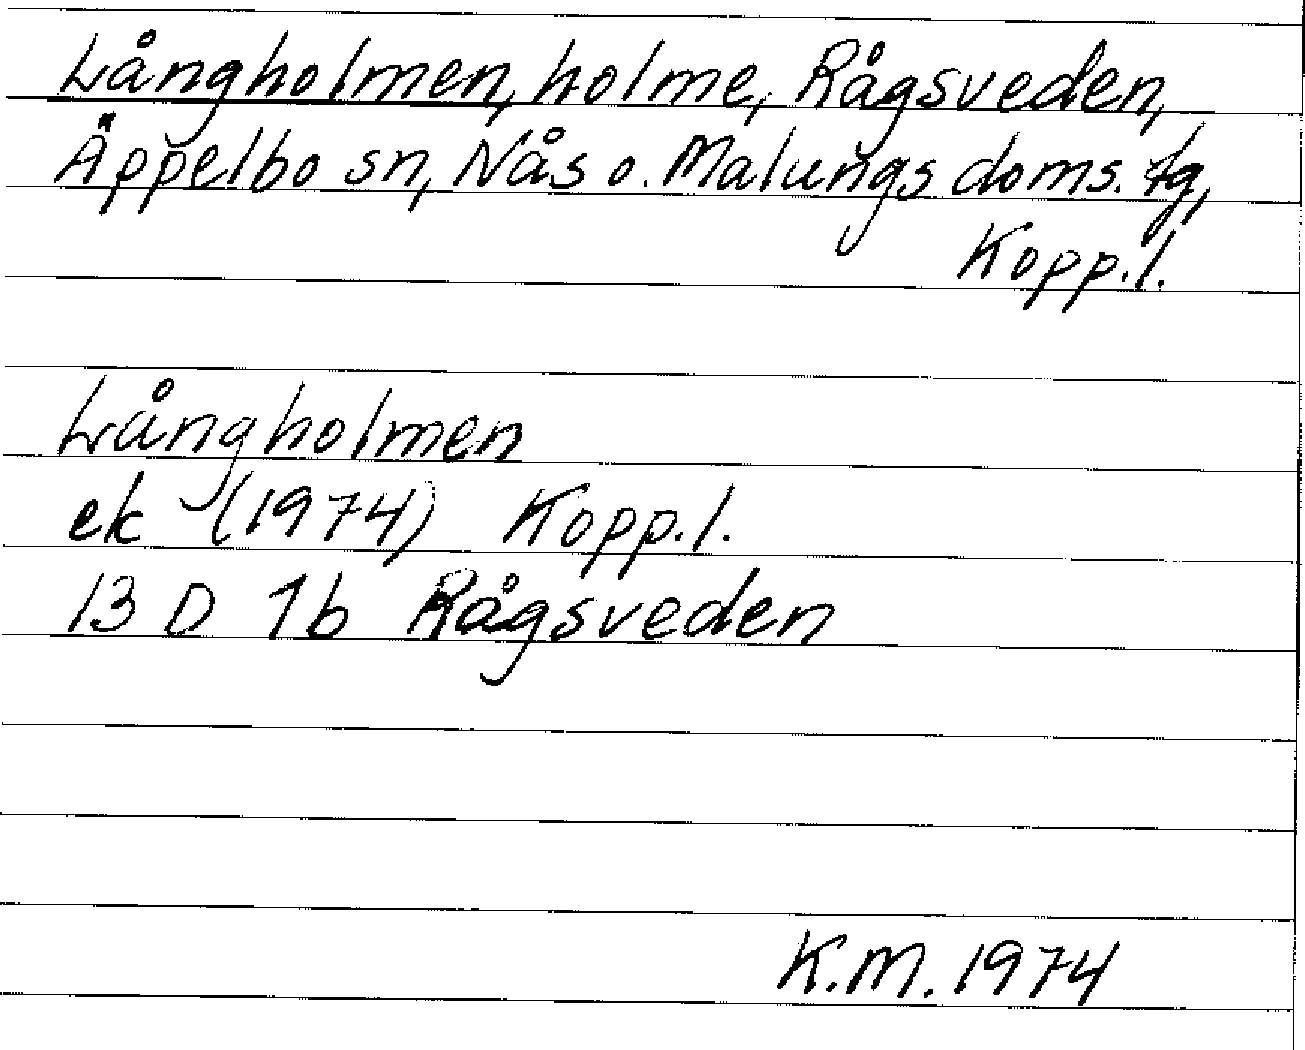 Långholmen, holme, Rågsveden,
Äppelbo sn, Nås o. Malungs doms. tg,
Kopp.l.
Långholmen
ek (1974) Kopp.l.
13 D 1b Rågsveden
K.M. 1974